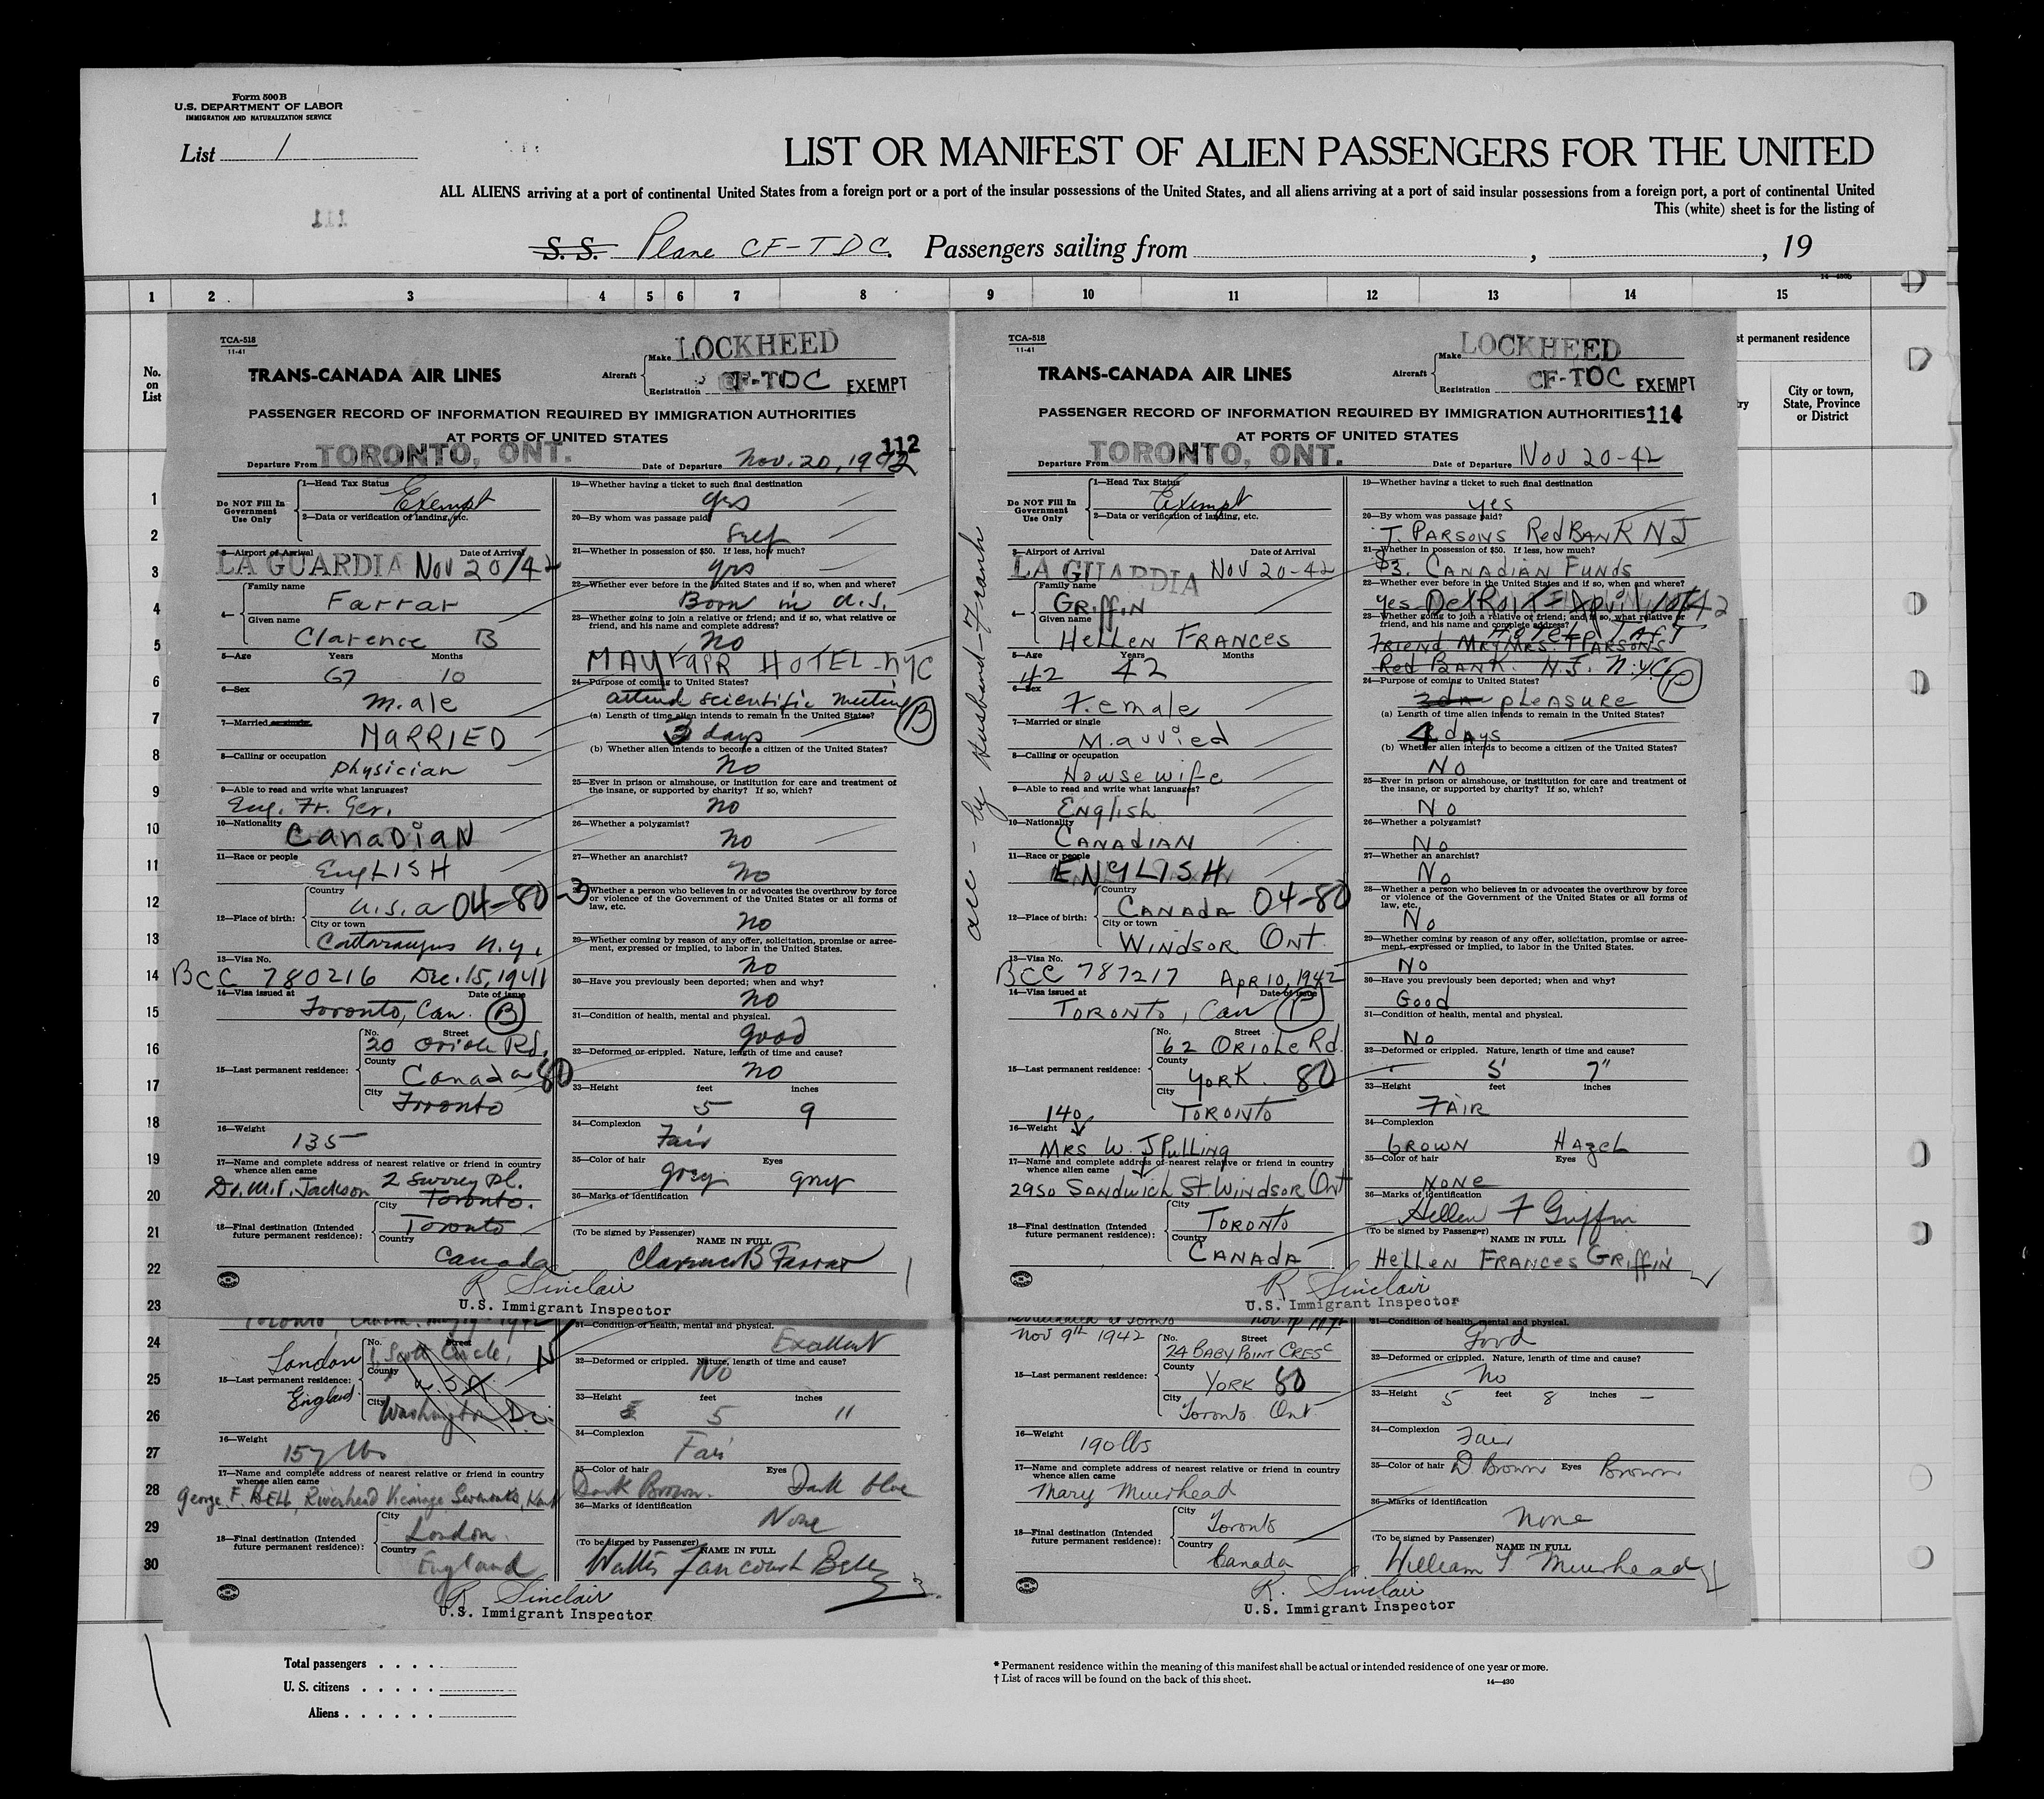 Form 500 B
U.S. DEPARTMENT OF LABOR
IMMIGRATION AND NATURALIZATION SERVICE
List 1
LIST OR MANIFEST OF ALIEN PASSENGERS FOR THE UNITED
ALL ALIENS arriving at a port of continental United States from a foreign port or a port of the insular possessions of the United States, and all aliens arriving at a port of said insular possessions from a foreign port, a port of continental United
This (white) sheet is for the listing of
111
S. S. Plane CF-TDC. Passengers sailing from , , 19
1 2 3 4 5 6 7 8 9 10 11 12 13 14 15
No. on List
st permanent residence
ry
City or town, State, Province or District
TCA-518
11-41
TRANS-CANADA AIR LINES
Aircraft
Make LOCKHEED
Registration CF-TDC EXEMPT
PASSENGER RECORD OF INFORMATION REQUIRED BY IMMIGRATION AUTHORITIES
AT PORTS OF UNITED STATES
112
Departure From TORONTO, ONT. Date of Departure Nov. 20, 1942
Do NOT Fill In Government Use Only
1—Head Tax Status
Exempt
2—Data or verification of landing, etc.
3—Airport of Arrival Date of Arrival
LA GUARDIA Nov 20/42
4—
Family name
Farrar
Given name
Clarence B
5—Age Years Months
67 10
6—Sex
Male
7—Married or single
MARRIED
8—Calling or occupation
physician
9—Able to read and write what languages?
Eng. Fr. Ger.
10—Nationality
CANADIAN
11—Race or people
ENGLISH
12—Place of birth:
Country
U.S.A 04-80-3
City or town
Cattaraugus N.Y.
13—Visa No.
BCC 780216 Dec. 15, 1941
14—Visa issued at Date of issue
Toronto, Can. B
15—Last permanent residence:
No. Street
20 Oriole Rd.
County
Canada 80
City
Toronto
16—Weight
135
17—Name and complete address of nearest relative or friend in country whence alien came
Jackson 2 Surrey Pl.
Toronto.
18—Final destination (Intended future permanent residence):
City
Toronto
Country
Canada
19—Whether having a ticket to such final destination
yes
20—By whom was passage paid?
Self
21—Whether in possession of $50. If less, how much?
yes
22—Whether ever before in the United States and if so, when and where?
Born in U.S.
23—Whether going to join a relative or friend; and if so, what relative or friend, and his name and complete address?
NO
MAYFAIR HOTEL - NYC
24—Purpose of coming to United States?
attend scientific meeting B
(a) Length of time alien intends to remain in the United States?
3 days
(b) Whether alien intends to become a citizen of the United States?
no
25—Ever in prison or almshouse, or institution for care and treatment of the insane, or supported by charity? If so, which?
no
26—Whether a polygamist?
no
27—Whether an anarchist?
no
28—Whether a person who believes in or advocates the overthrow by force or violence of the Government of the United States or all forms of law, etc.
no
29—Whether coming by reason of any offer, solicitation, promise or agreement, expressed or implied, to labor in the United States.
no
30—Have you previously been deported; when and why?
no
31—Condition of health, mental and physical.
good
32—Deformed or crippled. Nature, length of time and cause?
no
33—Height feet inches
5 9
34—Complexion
Fair
35—Color of hair Eyes
grey grey
36—Marks of identification
(To be signed by Passenger)
NAME IN FULL
Clarence B Farrar
R Sinclair
U.S. Immigrant Inspector
TCA-518
11-41
TRANS-CANADA AIR LINES
Aircraft
Make LOCKHEED
Registration CF-TDC EXEMPT
PASSENGER RECORD OF INFORMATION REQUIRED BY IMMIGRATION AUTHORITIES 114
AT PORTS OF UNITED STATES
Departure From TORONTO, ONT. Date of Departure Nov 20-42
all - by Husband - Frank
Do NOT Fill In Government Use Only
1—Head Tax Status
Exempt
2—Data or verification of landing, etc.
3—Airport of Arrival Date of Arrival
LA GUARDIA NOV 20-42
4—
Family name
GRIFFIN
Given name
HELLEN FRANCES
5—Age Years Months
42 42
6—Sex
Female
7—Married or single
Married
8—Calling or occupation
Housewife
9—Able to read and write what languages?
English
10—Nationality
CANADIAN
11—Race or people
ENGLISH
12—Place of birth:
Country
CANADA 04-80
City or town
WINDSOR ONT.
13—Visa No.
BCC 787217 Apr 10, 1942
14—Visa issued at Date of issue
TORONTO, Can P
15—Last permanent residence:
No. Street
62 ORIOLE Rd.
County
YORK. 80
City
TORONTO
140
16—Weight
MRS W. J Pulling
17—Name and complete address of nearest relative or friend in country whence alien came
2950 SANDWICH ST WINDSOR Ont
18—Final destination (Intended future permanent residence):
City
TORONTO
Country
CANADA
19—Whether having a ticket to such final destination
yes
20—By whom was passage paid?
J. PARSONS RED BANK NJ
21—Whether in possession of $50. If less, how much?
$3. CANADIAN FUNDS
22—Whether ever before in the United States and if so, when and where?
yes - Detroit - April 10/42
23—Whether going to join a relative or friend; and if so, what relative or friend, and his name and complete address?
HOTEL TAFT
FRIEND MR & MRS. PARSONS
RED BANK. N.J. N.Y.C. P
24—Purpose of coming to United States?
pleasure
(a) Length of time alien intends to remain in the United States?
4 days
(b) Whether alien intends to become a citizen of the United States?
NO
25—Ever in prison or almshouse, or institution for care and treatment of the insane, or supported by charity? If so, which?
No
26—Whether a polygamist?
No
27—Whether an anarchist?
No
28—Whether a person who believes in or advocates the overthrow by force or violence of the Government of the United States or all forms of law, etc.
No
29—Whether coming by reason of any offer, solicitation, promise or agreement, expressed or implied, to labor in the United States.
No
30—Have you previously been deported; when and why?
Good
31—Condition of health, mental and physical.
No
32—Deformed or crippled. Nature, length of time and cause?
5' 7"
33—Height feet inches
FAIR
34—Complexion
BROWN HAZEL
35—Color of hair Eyes
NONE
36—Marks of identification
Hellen F Griffin
(To be signed by Passenger)
NAME IN FULL
HELLEN FRANCES GRIFFIN
R Sinclair
U.S. Immigrant Inspector
15—Last permanent residence:
London
England
No. Street
1 Scott Circle,
County
U.S.A
City
Washington D.C.
16—Weight
157 lbs
17—Name and complete address of nearest relative or friend in country whence alien came
George F. BELL, Riverhead Vicarage Sevenoaks, Kent
18—Final destination (Intended future permanent residence):
City
London
Country
England
31—Condition of health, mental and physical.
Excellent
32—Deformed or crippled. Nature, length of time and cause?
No
33—Height feet inches
5 11
34—Complexion
Fair
35—Color of hair Eyes
Dark Brown. Dark blue
36—Marks of identification
None
(To be signed by Passenger)
NAME IN FULL
Walter Fancourt Bell
R Sinclair
U.S. Immigrant Inspector
Nov 9th 1942
15—Last permanent residence:
No. Street
24 BABY POINT CRESC
County
YORK 80
City
Toronto Ont
16—Weight
190 lbs
17—Name and complete address of nearest relative or friend in country whence alien came
Mary Muirhead
18—Final destination (Intended future permanent residence):
City
Toronto
Country
Canada
31—Condition of health, mental and physical.
Good
32—Deformed or crippled. Nature, length of time and cause?
No
33—Height 5 feet 8 inches —
34—Complexion
Fair
35—Color of hair D. Brown Eyes Brown
36—Marks of identification
none
(To be signed by Passenger)
NAME IN FULL
William T Muirhead
R. Sinclair
U.S. Immigrant Inspector
1
2
3
4
5
6
7
8
9
10
11
12
13
14
15
16
17
18
19
20
21
22
23
24
25
26
27
28
29
30
Total passengers . . . .
U. S. citizens . . . . .
Aliens . . . . . .
* Permanent residence within the meaning of this manifest shall be actual or intended residence of one year or more.
† List of races will be found on the back of this sheet.
14—430